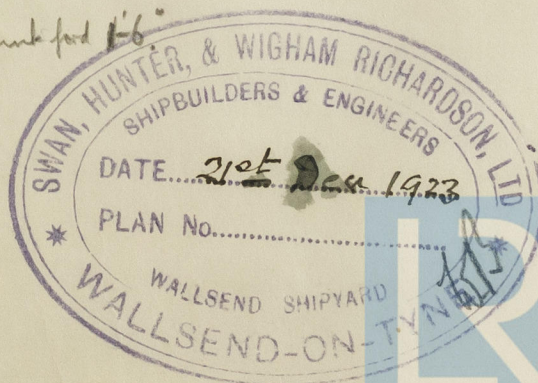 1'-6"
SWAN, HUNTER, & WIGHAM RICHARDSON, LTD
SHIPBUILDERS & ENGINEERS
DATE 21st Dec 1923
PLAN No.
WALLSEND SHIPYARD
WALLSEND-ON-TYNE
LR